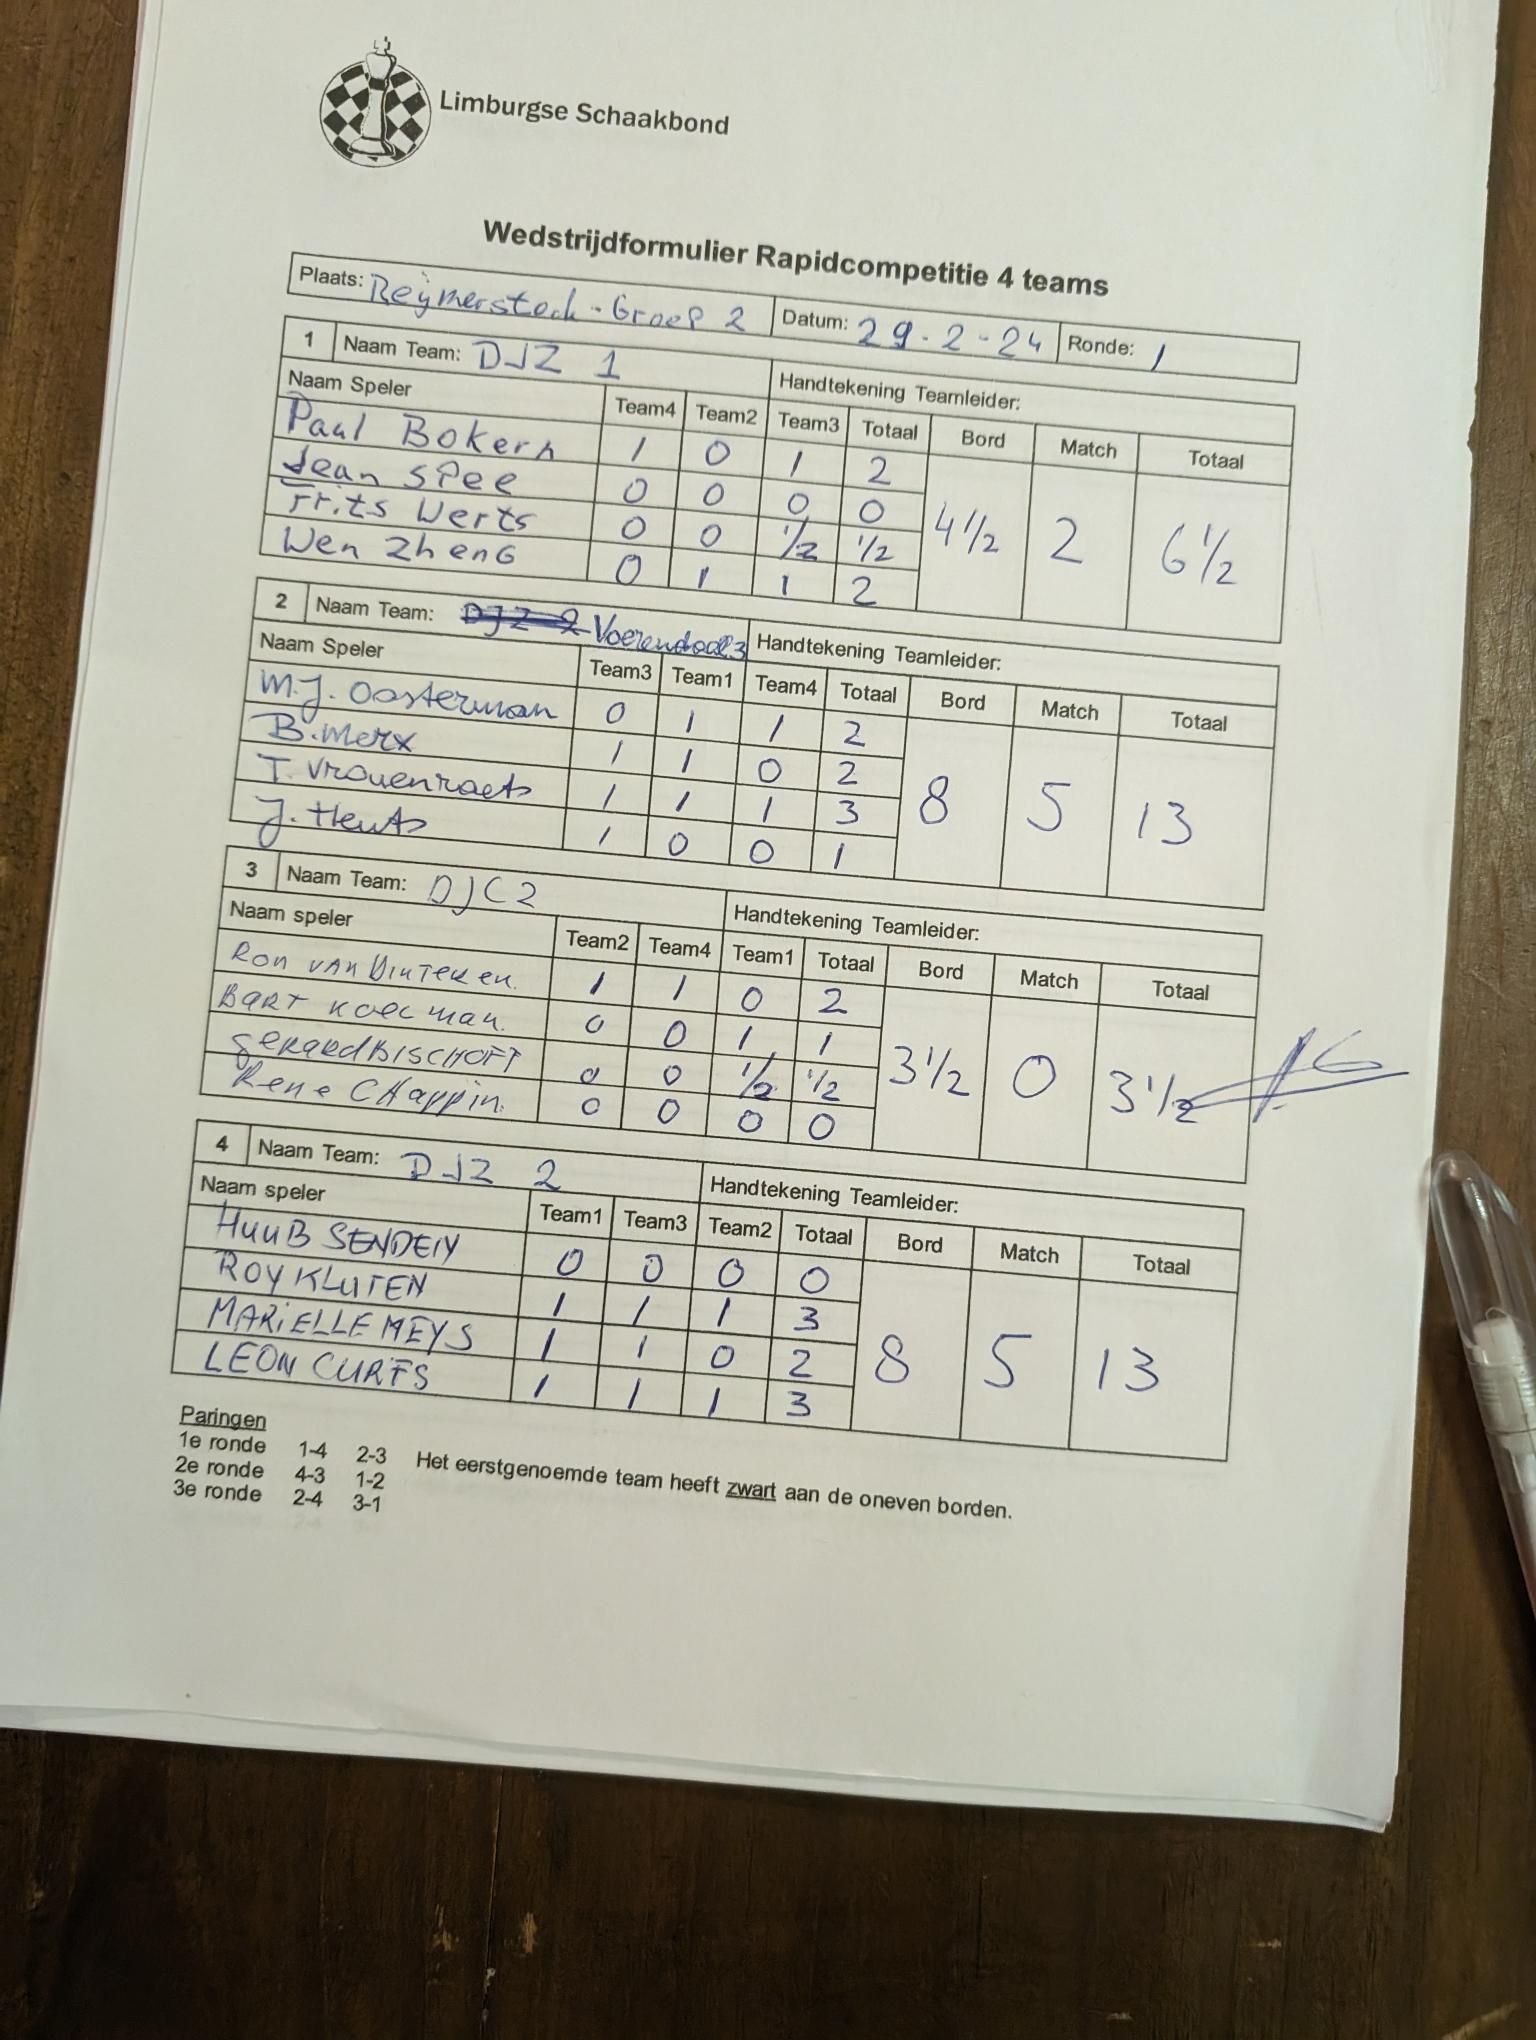 Limburgse Schaakbond
Wedstrijdformulier Rapidcompetitie 4 teams
Plaats: Reijmerstock - Groep 2 Datum: 29-2-24 Ronde: 1
1 Naam Team: DJZ 1 Handtekening Teamleider:
Naam Speler Team4 Team2 Team3 Totaal Bord Match Totaal
Paul Bokern 1 0 1 2
Jean Spee 0 0 0 0
Frits Werts 0 0 1/2 1/2
Wen Zheng 0 1 1 2
4 1/2 2 6 1/2
2 Naam Team: DJZ 2 Voerendaal 3 Handtekening Teamleider:
Naam Speler Team3 Team1 Team4 Totaal Bord Match Totaal
M.J. Oosterman 0 1 1 2
B. Merx 1 1 0 2
T. Vrouenraets 1 1 1 3
J. Heuts 1 0 0 1
8 5 13
3 Naam Team: DJC2 Handtekening Teamleider:
Naam speler Team2 Team4 Team1 Totaal Bord Match Totaal
Ron van Dinteren. 1 1 0 2
Bart Koelman. 0 0 1 1
Gerard Bischoft 0 0 1/2 1/2
Rene CHappin. 0 0 0 0
3 1/2 0 3 1/2
4 Naam Team: DJZ 2 Handtekening Teamleider:
Naam speler Team1 Team3 Team2 Totaal Bord Match Totaal
HUUB SENDEN 0 0 0 0
ROY KLUTEN 1 1 1 3
MARIELLE MEYS 1 1 0 2
LEON CURFS 1 1 1 3
8 5 13
Paringen
1e ronde 1-4 2-3 Het eerstgenoemde team heeft zwart aan de oneven borden.
2e ronde 4-3 1-2
3e ronde 2-4 3-1